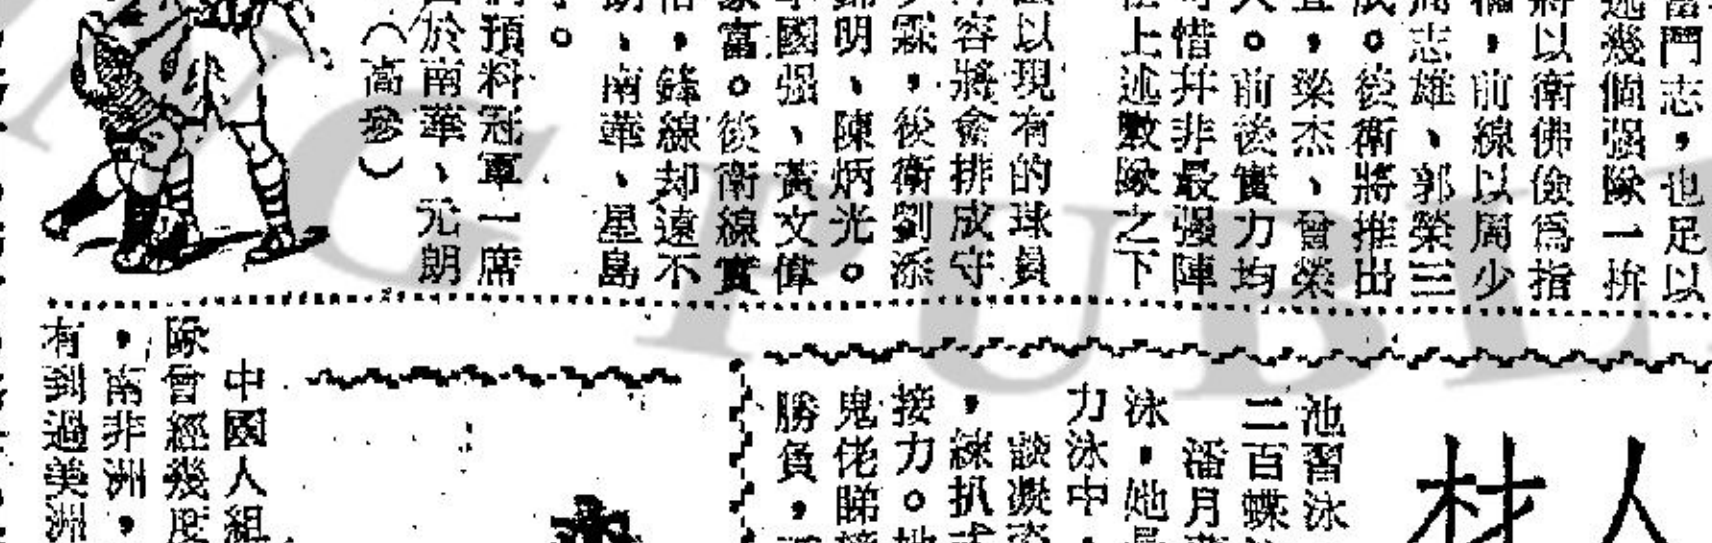 當鬥志，也足以
述幾個强隊一拚
將以衛佛儉爲指
，前線以周少
周志雄、郭榮三
成。後衛將推出
，梁杰、曾榮
人。前後實力均
可惜幷非最强陣
上述數隊之下
以現有的球員
容將會排成守
霖，後衛劉添
錦明、陳炳光。
中國强、黃文偉
富。後衛線實
，鋒線却遠不
朗、南華、星島
。
預料冠軍一席
於南華、元朗
（高參）
人材
池習泳
二百蝶
潘月
泳，她是
力泳中，
談凝姿
，練扒式
接力。她
鬼佬睇
勝負，
中國人組
隊曾經幾度
，南非洲，
有到過美洲
PUBL